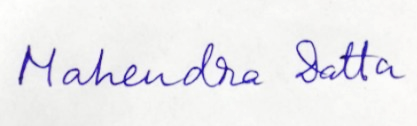 Mahendra Datta